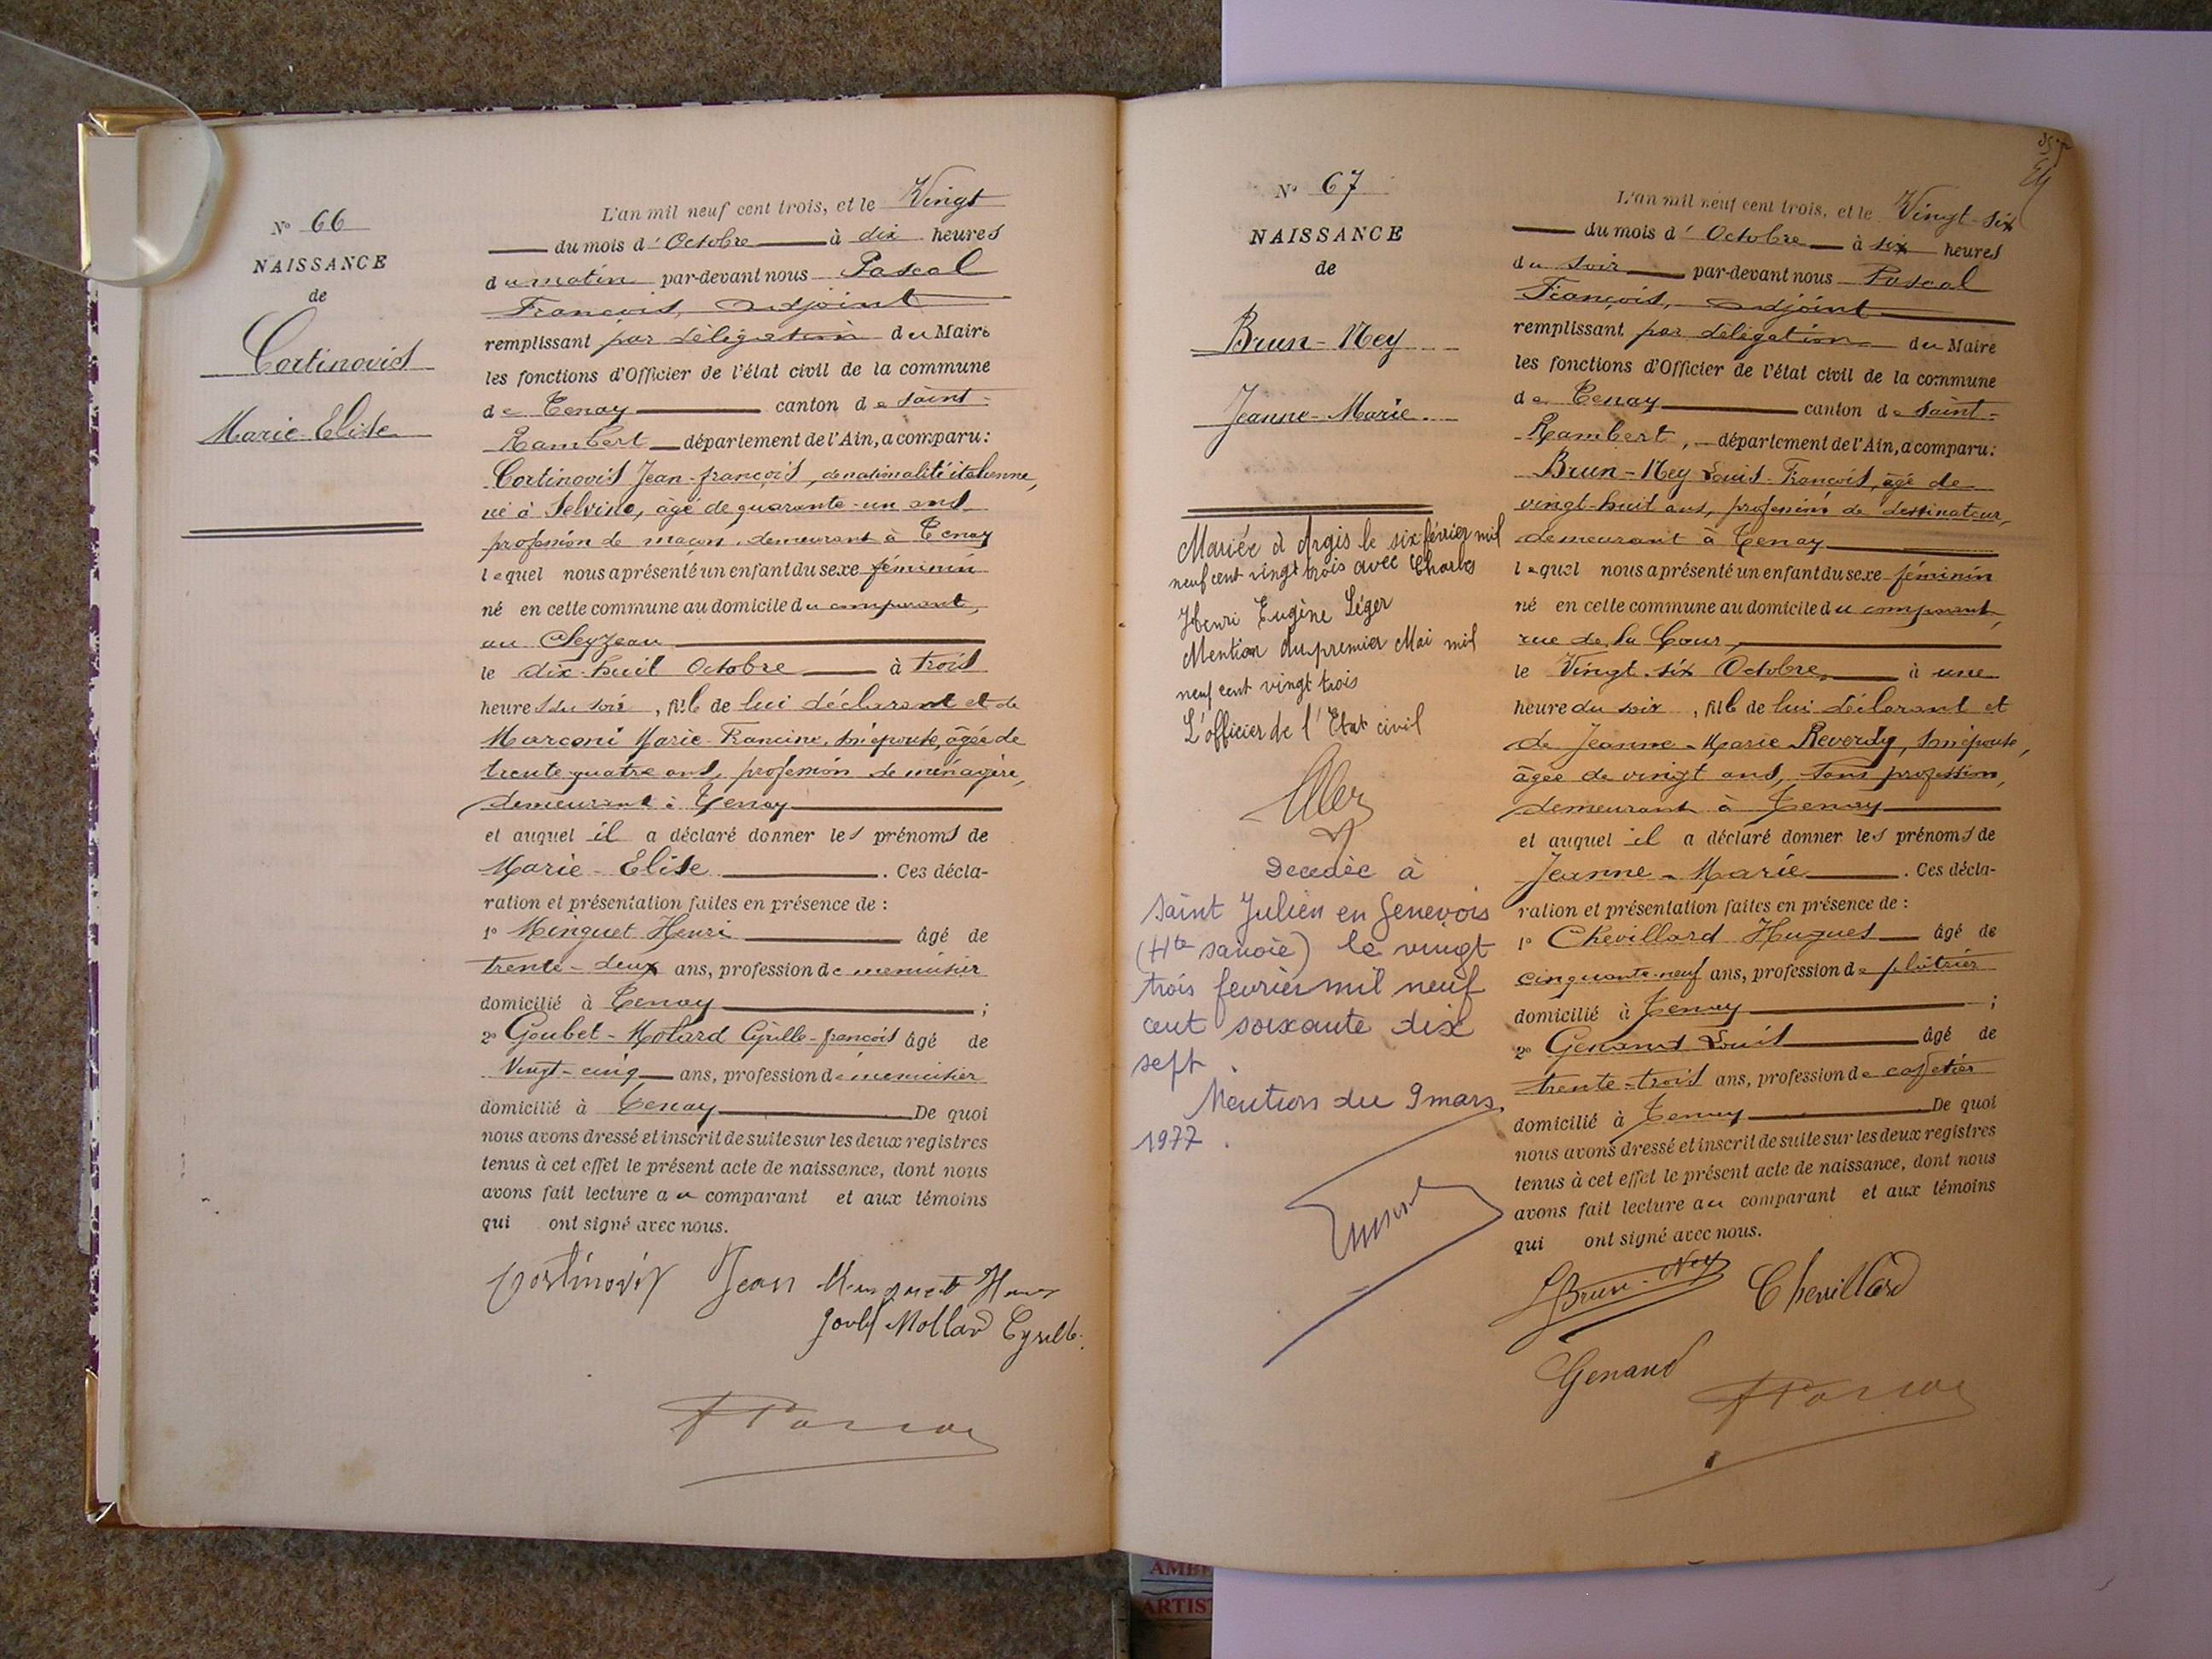 N° 66
NAISSANCE
de
Cortinovis
Marie-Elise
L'an mil neuf cent trois, et le Vingt
du mois d'Octobre à dix heures
du matin par-devant nous Pascal
François, adjoint
remplissant par délégation du Maire
les fonctions d'Officier de l'état civil de la commune
de Tenay canton de Saint-
Rambert département de l'Ain, a comparu:
Cortinovis Jean-françois, de nationalité italienne,
né à Selvino, âgé de quarante-un ans
profession de maçon, demeurant à Tenay
lequel nous a présenté un enfant du sexe féminin
né en cette commune au domicile du comparant,
au Cleyzeau
le dix-huit Octobre à trois
heures du soir, fille de lui déclarant et de
Marconi Marie-Francine, son épouse, âgée de
trente quatre ans, profession de ménagère,
demeurant à Tenay
et auquel il a déclaré donner les prénoms de
Marie-Elise. Ces décla-
ration et présentation faites en présence de :
1° Minguet Henri âgé de
trente-deux ans, profession de menuisier
domicilié à Tenay ;
2° Goubet-Molard Cyrille-françois âgé de
Vingt-cinq ans, profession de menuisier
domicilié à Tenay De quoi
nous avons dressé et inscrit de suite sur les deux registres
tenus à cet effet le présent acte de naissance, dont nous
avons fait lecture au comparant et aux témoins
qui ont signé avec nous.
Cortinovis Jean Minguet Henri
Mollard Cyrille
N° 67
NAISSANCE
de
Brun-Ney
Jeanne-Marie
Mariée à Argis le six février mil
neuf cent vingt trois avec Charles
Henri Eugène Léger
Mention du premier Mai mil
neuf cent vingt trois
L'officier de l'Etat civil
Decedée à
Saint Julien en Genevois
(Hte savoie) le vingt
trois fevrier mil neuf
cent soixante dix
sept
Mention du 9 mars
1977.
L'an mil neuf cent trois, et le Vingt-six
du mois d'Octobre à six heures
du soir par-devant nous Pascal
François, adjoint
remplissant par délégation du Maire
les fonctions d'Officier de l'état civil de la commune
de Tenay canton de Saint-
Rambert, département de l'Ain, a comparu:
Brun-Ney Louis-François, âgé de
vingt-huit ans, profession de dessinateur,
demeurant à Tenay
lequel nous a présenté un enfant du sexe féminin
né en cette commune au domicile du comparant,
rue de la Cour,
le Vingt-six Octobre, à une
heure du soir, fille de lui déclarant et
de Jeanne-Marie Reverdy, son épouse,
âgée de vingt ans, sans profession,
demeurant à Tenay
et auquel il a déclaré donner les prénoms de
Jeanne-Marie. Ces décla-
ration et présentation faites en présence de :
1° Chevillard Hugues âgé de
cinquante-neuf ans, profession de plâtrier
domicilié à Tenay ;
2° Genand Louis âgé de
trente-trois ans, profession de cafetier
domicilié à Tenay De quoi
nous avons dressé et inscrit de suite sur les deux registres
tenus à cet effet le présent acte de naissance, dont nous
avons fait lecture au comparant et aux témoins
qui ont signé avec nous.
LBrun-Ney Chevillard
Genand